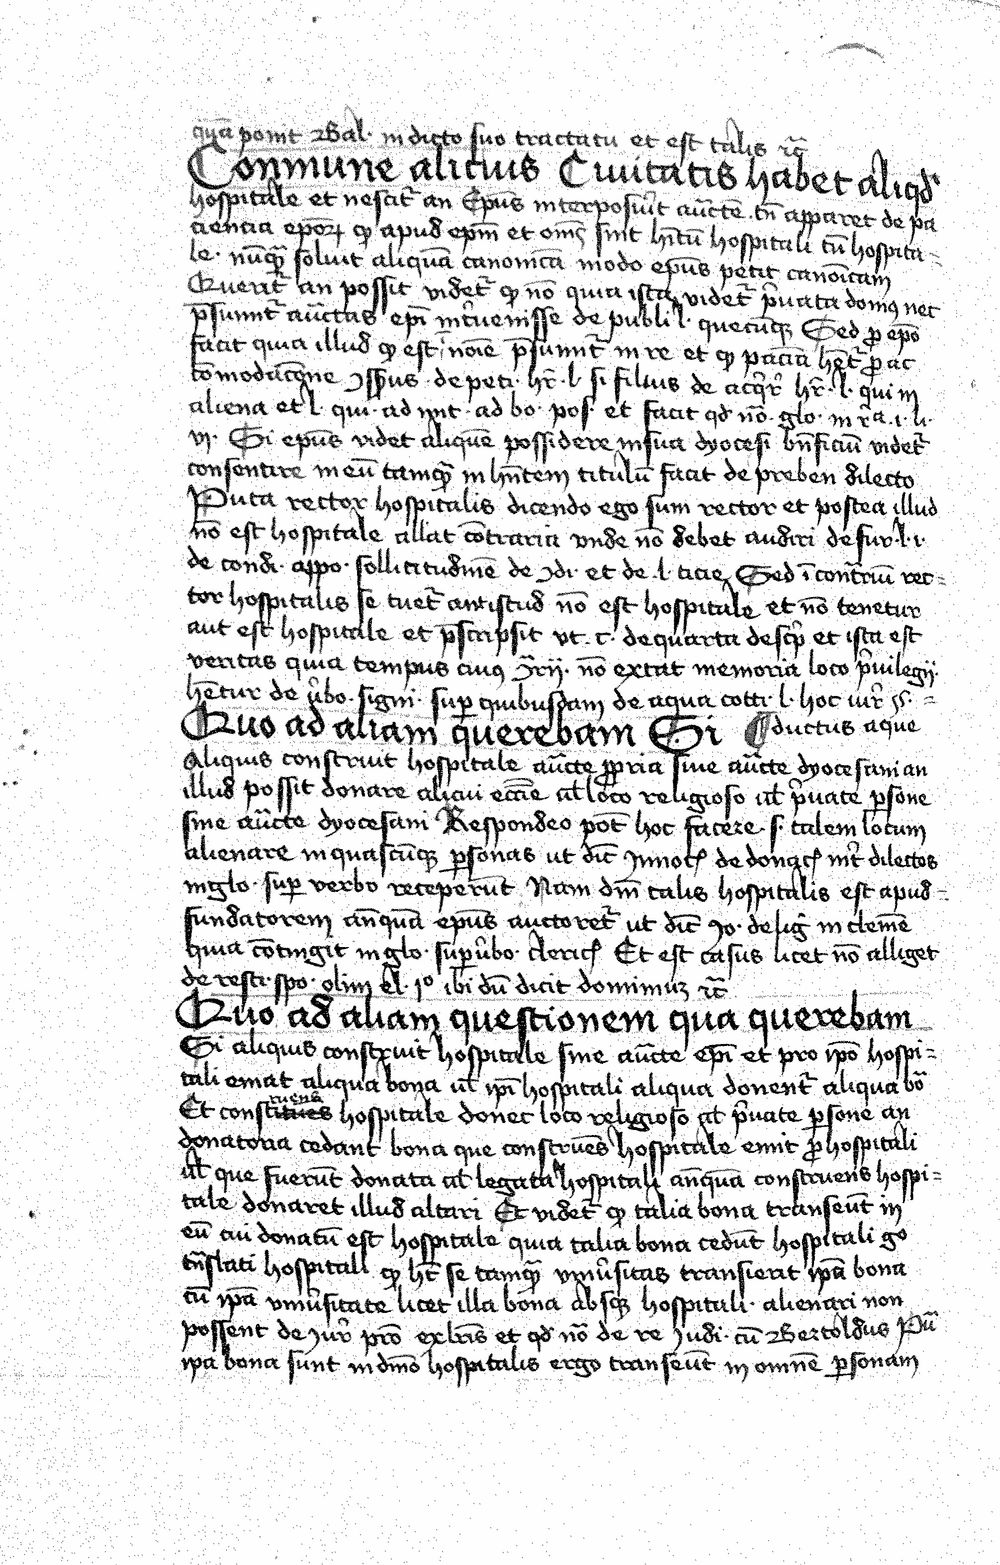 quā ponit Bal. in dicto suo tractatu et est talis ⁊c̄
Conmune alicuius Ciuitatis habet aliqd̓
hospitale et nescit̄ an Ep̄us interposuit auc̄te tn̄ apparet de pa
ciencia ep̄oꝝ qꝫ apud ep̄m et om̄s sint hn̄tū hospitali cū hospita=
le. nūqꝫ soluit aliquā canonicā modo ep̄us petit canōicam
Querit̄ an possit videt̄ qꝫ nō quia ista videt̄ p̓uata domꝰ nec
p̄sumit̄ auc̄tas ep̄i int̓uenisse de publi l. quecūqꝫ Sed ꝓ ep̄o
facit quia illud qꝫ est noīe p̄sumit̄ in re et qꝫ pac̄ia hēt̄ ꝓ ac
de peti. hr̄. l. si filius de acq̓r̓ hr̄. l. qui in
aliena et l. qui ad ad bo. pos. et facit qd̓ nō. glo. in
vi. Si ep̄us videt aliquē possidere in sua dyocesi bn̄ficiū videt̄
consentire in eū tamqꝫ in hn̄tem titulū facit de preben dilecto
Puta rector hospitalis dicendo ego sum rector et postea illud
nō est hospitale allat cōtraria vnde nō debet audiri de fur. l. i.
de condi. appo. sollicitudinē de ꝯdi. et de. l. ticie Sed ī contr̄iū rec=
tor hospitalis se tuet̄ an istud nō est hospitale et nō tenetur
aut est hospitale et p̄scripsit vt. c. de quarta de scp̓ et ista est
veritas quia tempus cuiꝰ nō extat memoria loco p̓uilegij
hētur de v̓bo. signi. suꝑ quibusdam de aqua cotti. l. hoc iur̓ §. =
Quo ad aliam querebam Si ductus aque
Aliquis construit hospitale auc̄te ꝓpria siue auc̄te dyocesani an
illud possit donare alicui ecc̄ie ul̄ loco religioso ul̄ p̓uate ꝑsone
sine auc̄te dyocesani Respondeo pōt hoc facere. s. talem locum
alienare in quascūqꝫ ꝑsonas ut dic̄ Jnnoc̄ de donac̄ int̓ dilectos
in glo. suꝑ verbo receperūt Nam dn̄m talis hospitalis est apud=
fundatorem anquā ep̄us auctoret̄ ut dic̄ Jo. de lig̓ in clemē
quia cōtingit in glo. suꝑ v̓bo. cleric̄ Et est casus licet nō alliget
de resti. spo. olim el. 1º ibi dū dicit dominus ⁊c̄
Quo ad aliam questionem qua querebam
Si aliquis construit hospitale sine auc̄te ep̄i et pro ip̄o hospi=
tali emat aliqua bona ul̄ ip̄i hospitali aliqua donent̄ aliqua bō
Et constituens hospitale donec loco religioso ul̄ p̓uate ꝑsone an
donatoria cedant bona que construēs hospitale emit ꝓ hospitali
ul̄ que fuerūt donata ul̄ legata hospitali anquā construens hospi=
tale donaret illud altari Et videt̄ qꝫ talia bona transeūt in
eū cui donatū est hospitale quia talia bona cedūt hospitali go
tn̄slati hospitali qꝫ ht̄ se tamqꝫ vniu̓sitas transierit ip̄a bona
cū ip̄a vniu̓sitate licet illa bona absqꝫ hospitali. alienari non
possent de iur̓ prō exl̄ris et qd̓ nō de re iudi. cū Bertoldus
ip̄a bona sunt in dn̄io hospitalis ergo transeūt in omnē ꝑsonam